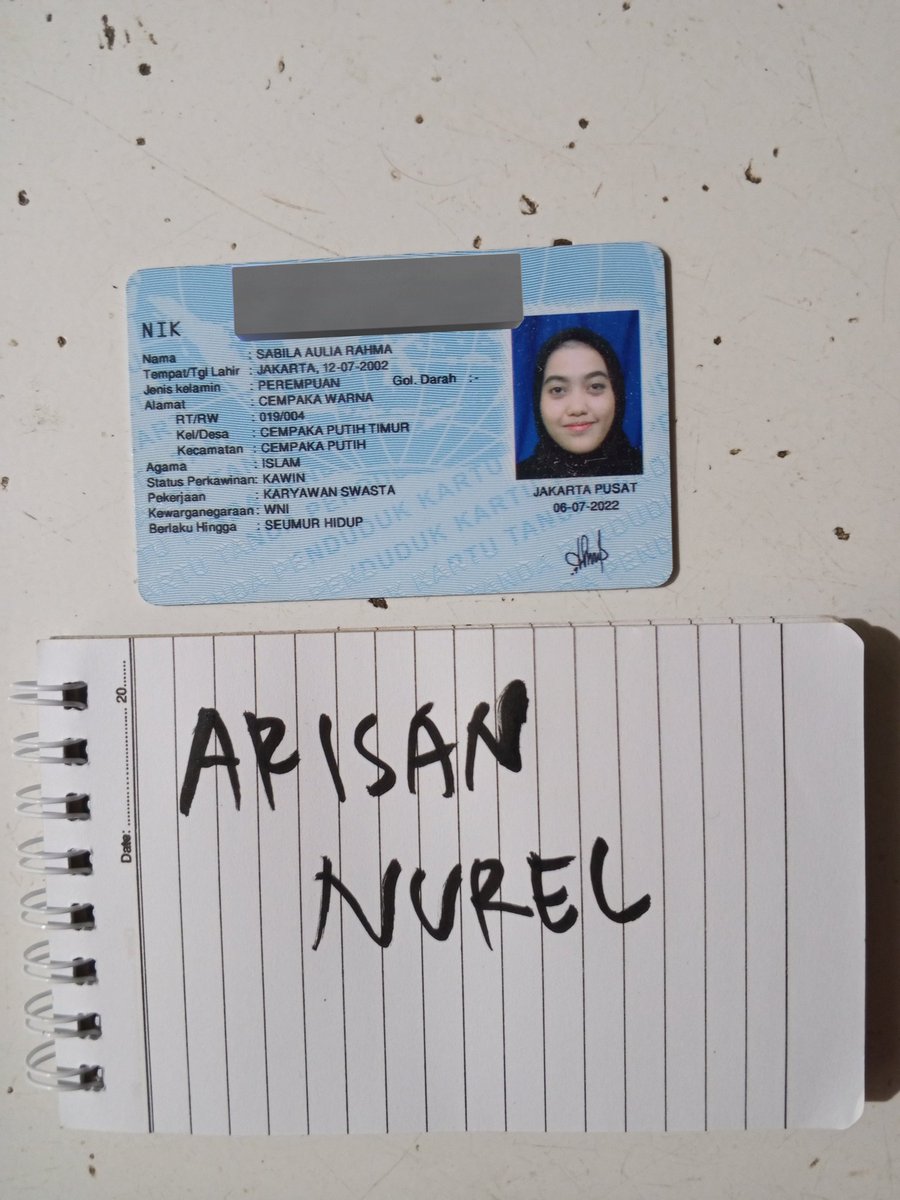 NIK
Nama : SABILA AULIA RAHMA
Tempat/Tgl Lahir : JAKARTA, 12-07-2002
Jenis kelamin : PEREMPUAN Gol. Darah :-
Alamat : CEMPAKA WARNA
RT/RW : 019/004
Kel/Desa : CEMPAKA PUTIH TIMUR
Kecamatan : CEMPAKA PUTIH
Agama : ISLAM
Status Perkawinan: KAWIN
Pekerjaan : KARYAWAN SWASTA
Kewarganegaraan: WNI
Berlaku Hingga : SEUMUR HIDUP
JAKARTA PUSAT
06-07-2022
Date: ........................... 20.......
ARISAN
NUREL